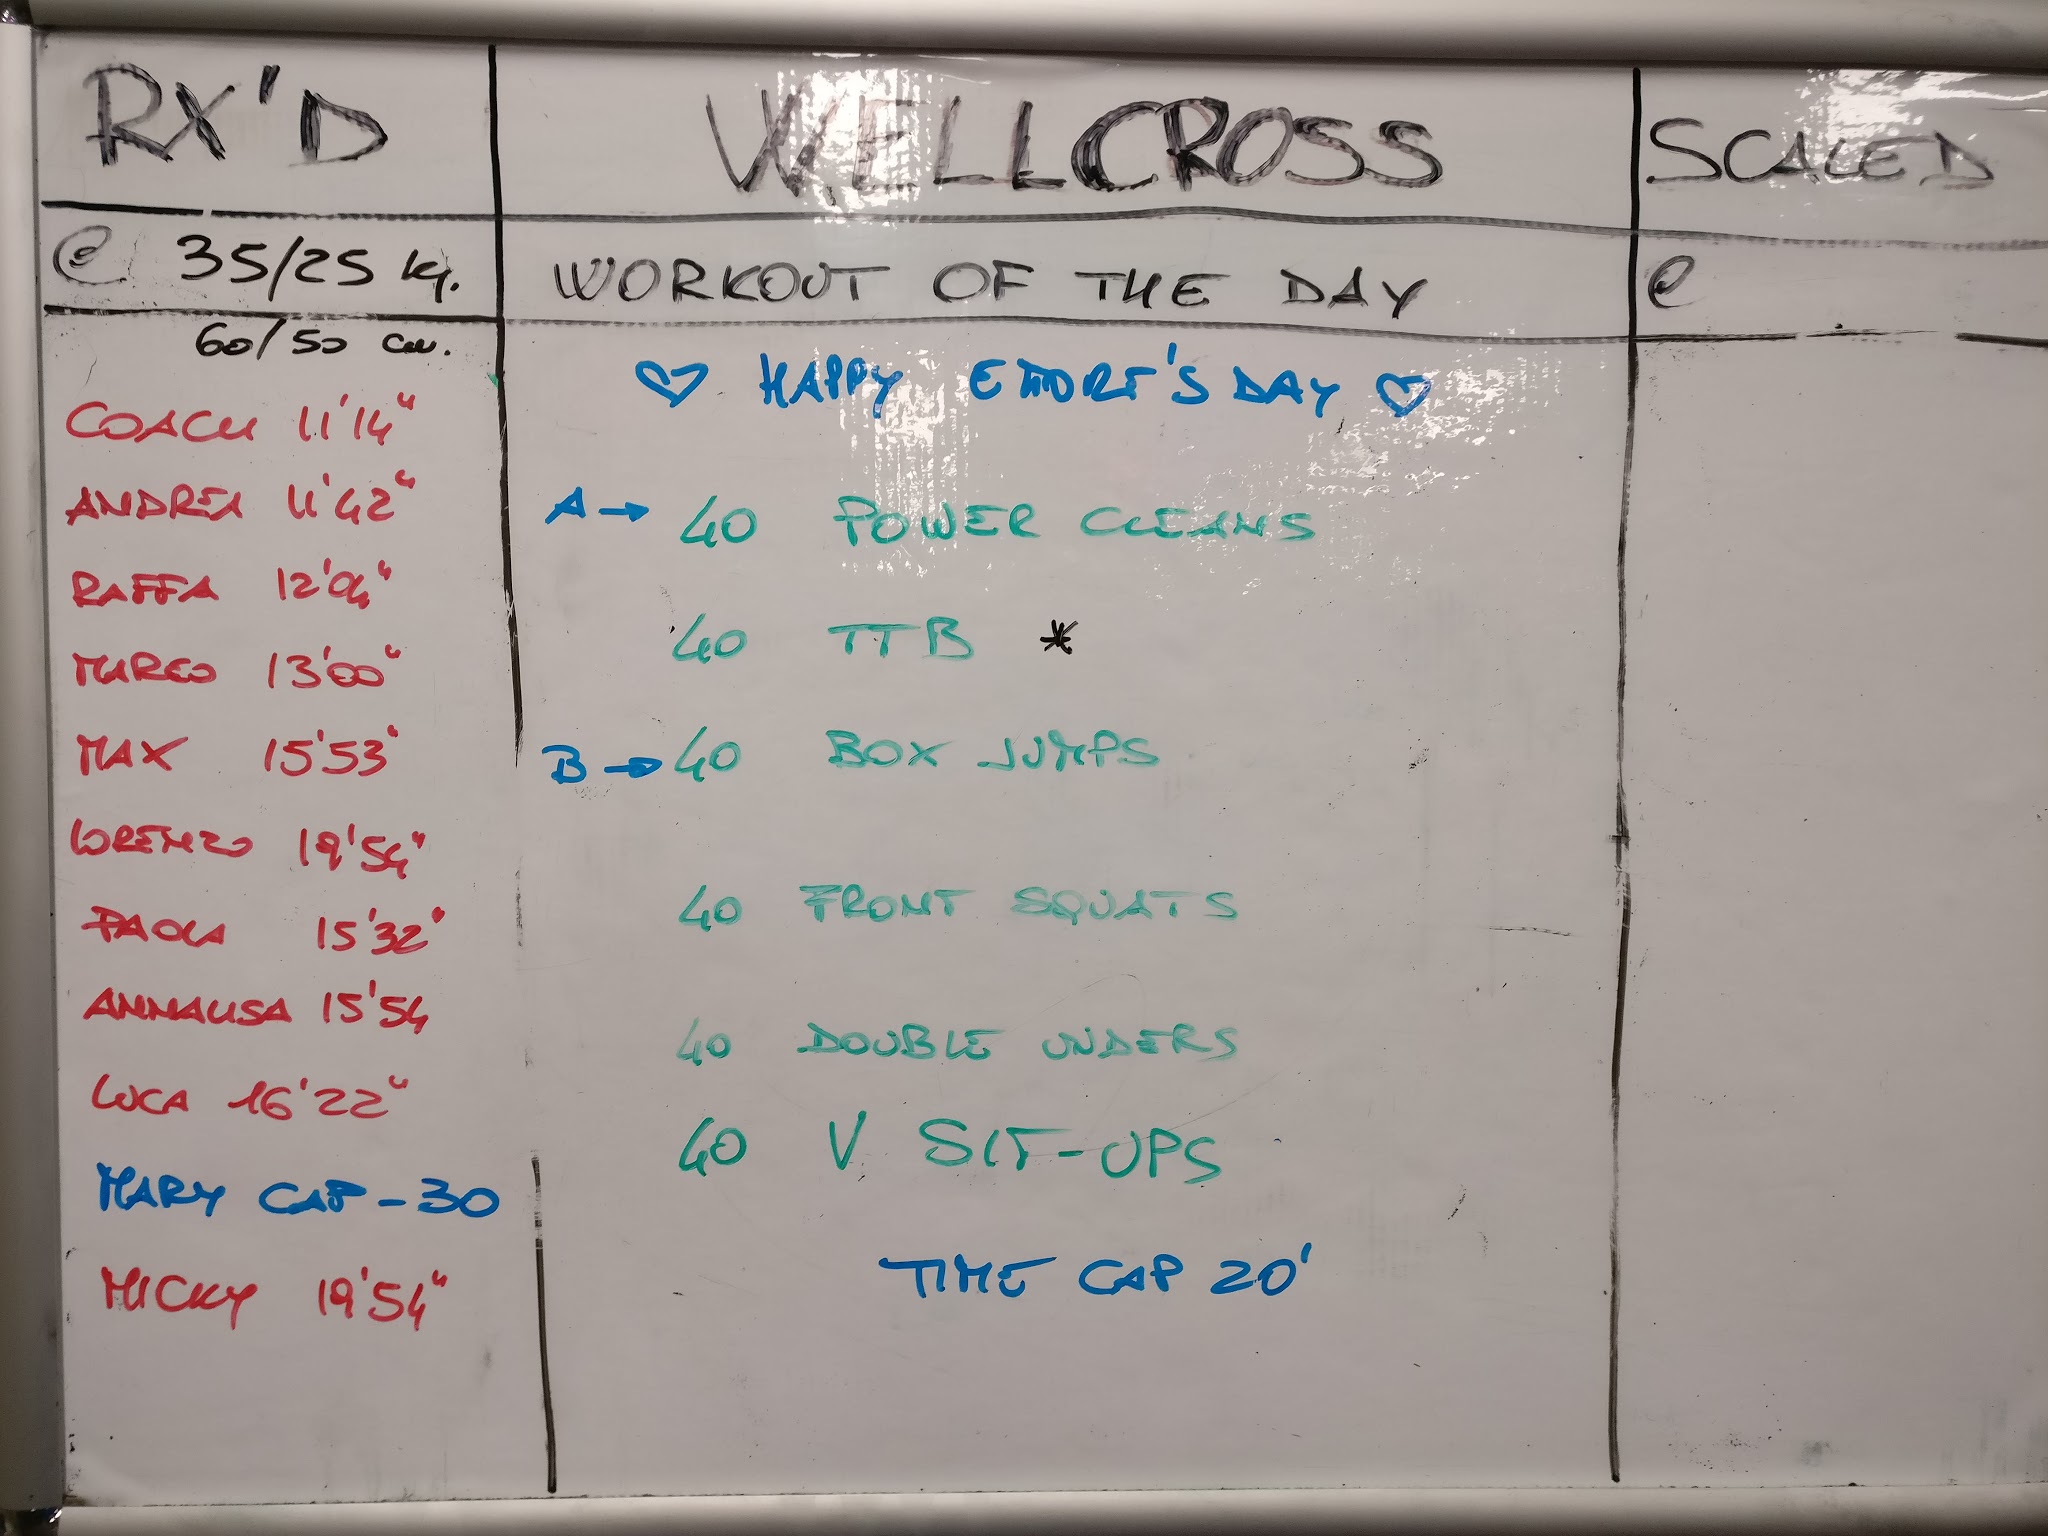 RX'D
@ 35/25 kg.
60/50 cm.
COACH 11'14"
ANDREA 11'42"
RAFFA 12'04"
MIRCO 13'00"
MAX 15'53"
LORENZO 19'54"
PAOLA 15'32"
ANNALISA 15'54
LUCA 16'22"
MARY CAP - 30
MICKY 19'54"
WELLCROSS
WORKOUT OF THE DAY
♡ HAPPY DAY ♡
A → 40 POWER CLEANS
40 TTB *
B → 40 BOX JUMPS
40 FRONT SQUATS
40 DOUBLE UNDERS
40 V SIT-UPS
TIME CAP 20'
SCALED
@